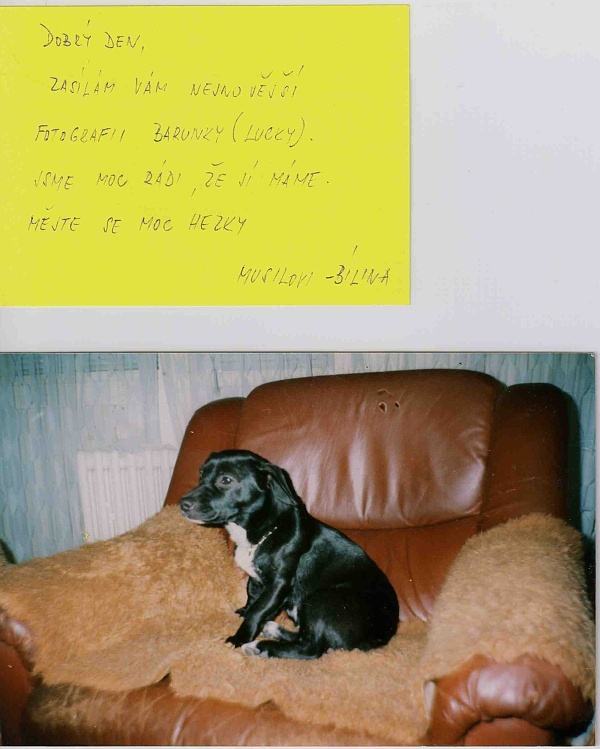 DOBRÝ DEN,
ZASÍLÁM VÁM NEJNOVĚJŠÍ
FOTOGRAFII BARUNKY (LUCKY).
JSME MOC RÁDI, ŽE JÍ MÁME.
MĚJTE SE MOC HEZKY
MUSILOVI - BÍLINA